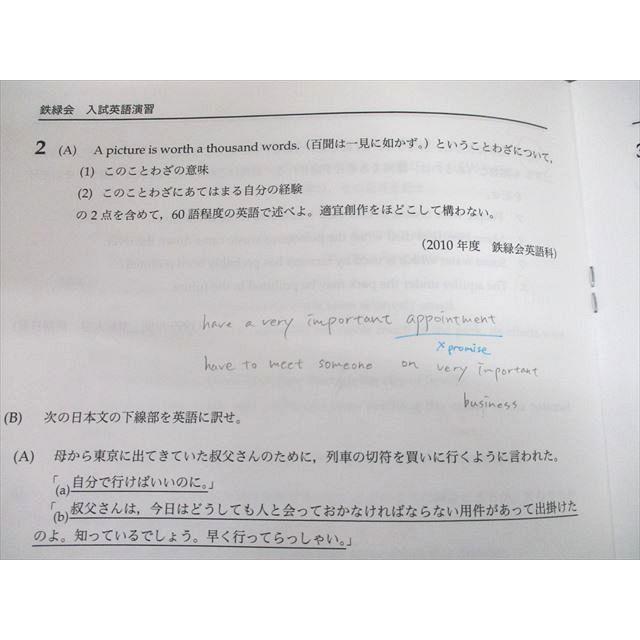 鉄緑会 入試英語演習
2 (A) A picture is worth a thousand words.(百聞は一見に如かず。)ということわざについて,
(1) このことわざの意味
(2) このことわざにあてはまる自分の経験
の2点を含めて,60語程度の英語で述べよ。適宜創作をほどこして構わない。
(2010年度 鉄緑会英語科)
have a very important appointment
×promise
have to meet someone on very important
business
(B) 次の日本文の下線部を英語に訳せ。
(A) 母から東京に出てきていた叔父さんのために,列車の切符を買いに行くように言われた。
「(a)自分で行けばいいのに。」
「(b)叔父さんは,今日はどうしても人と会っておかなければならない用件があって出掛けた
のよ。知っているでしょう。早く行ってらっしゃい。」